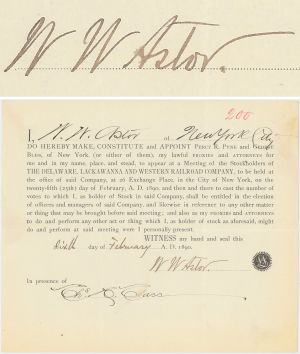 W W Astor.
200
I, W. W. Astor of New York City
DO HEREBY MAKE, CONSTITUTE and APPOINT PERCY R. PYNE and GEORGE
BLISS, of New York (or either of them), my lawful PROXIES and ATTORNEYS for
me and in my name, place, and stead, to appear at a Meeting of the Stockholders of
THE DELAWARE, LACKAWANNA AND WESTERN RAILROAD COMPANY, to be held
at the office of said Company, at 26 Exchange Place, in the City of New York, on the
twenty-fifth (25th) day of February, A. D. 1890, and then and there to cast the number of
votes to which I, as holder of Stock in said Company, shall be entitled in the election
of officers and managers of said Company, and likewise in reference to any other matter
or thing that may be brought before said meeting; and also as my PROXIES and ATTORNEYS
to do and perform any other act or thing which I, as holder of stock as aforesaid, might
do and perform at said meeting were I personally present.
WITNESS my hand and seal this
Sixth day of February A. D. 1890.
W W Astor.
In presence of